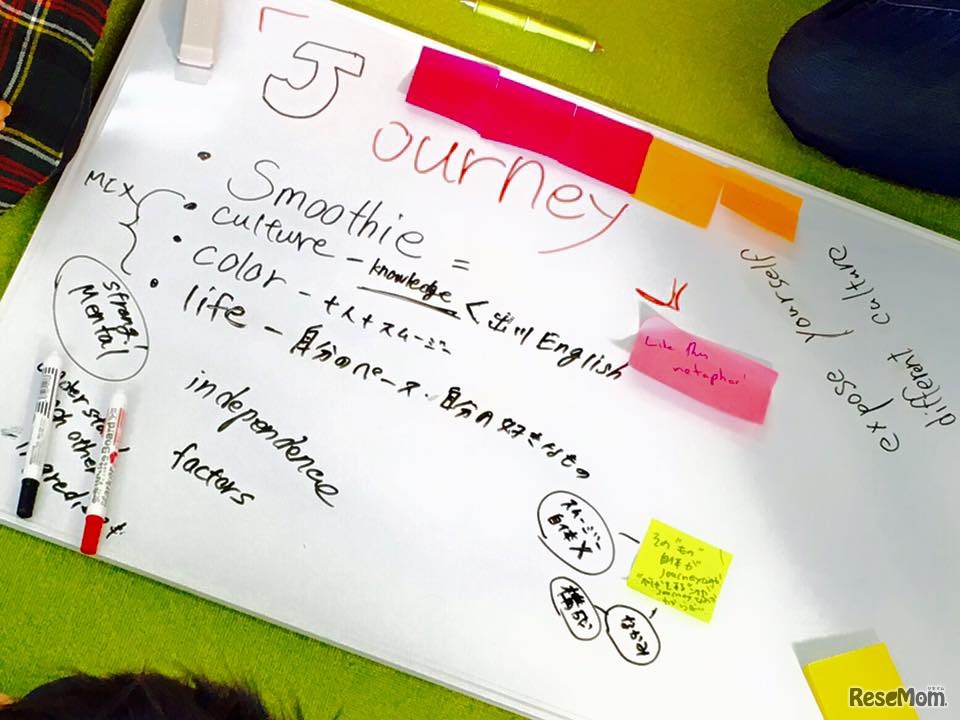 「Journey
• Smoothie =
MIX
• culture - knowledge < 出川 English
• color - 十人十スムージー
• life - 自分のペース・自分の好きなもの
independence
factors
strong!
Mental
understand
each other
ingredient
Like this
expose yourself
different culture
スムージー
自体 X
その"もの"
自体が
Journey
構成
なかみ
WhiteBoard
ReseMom.